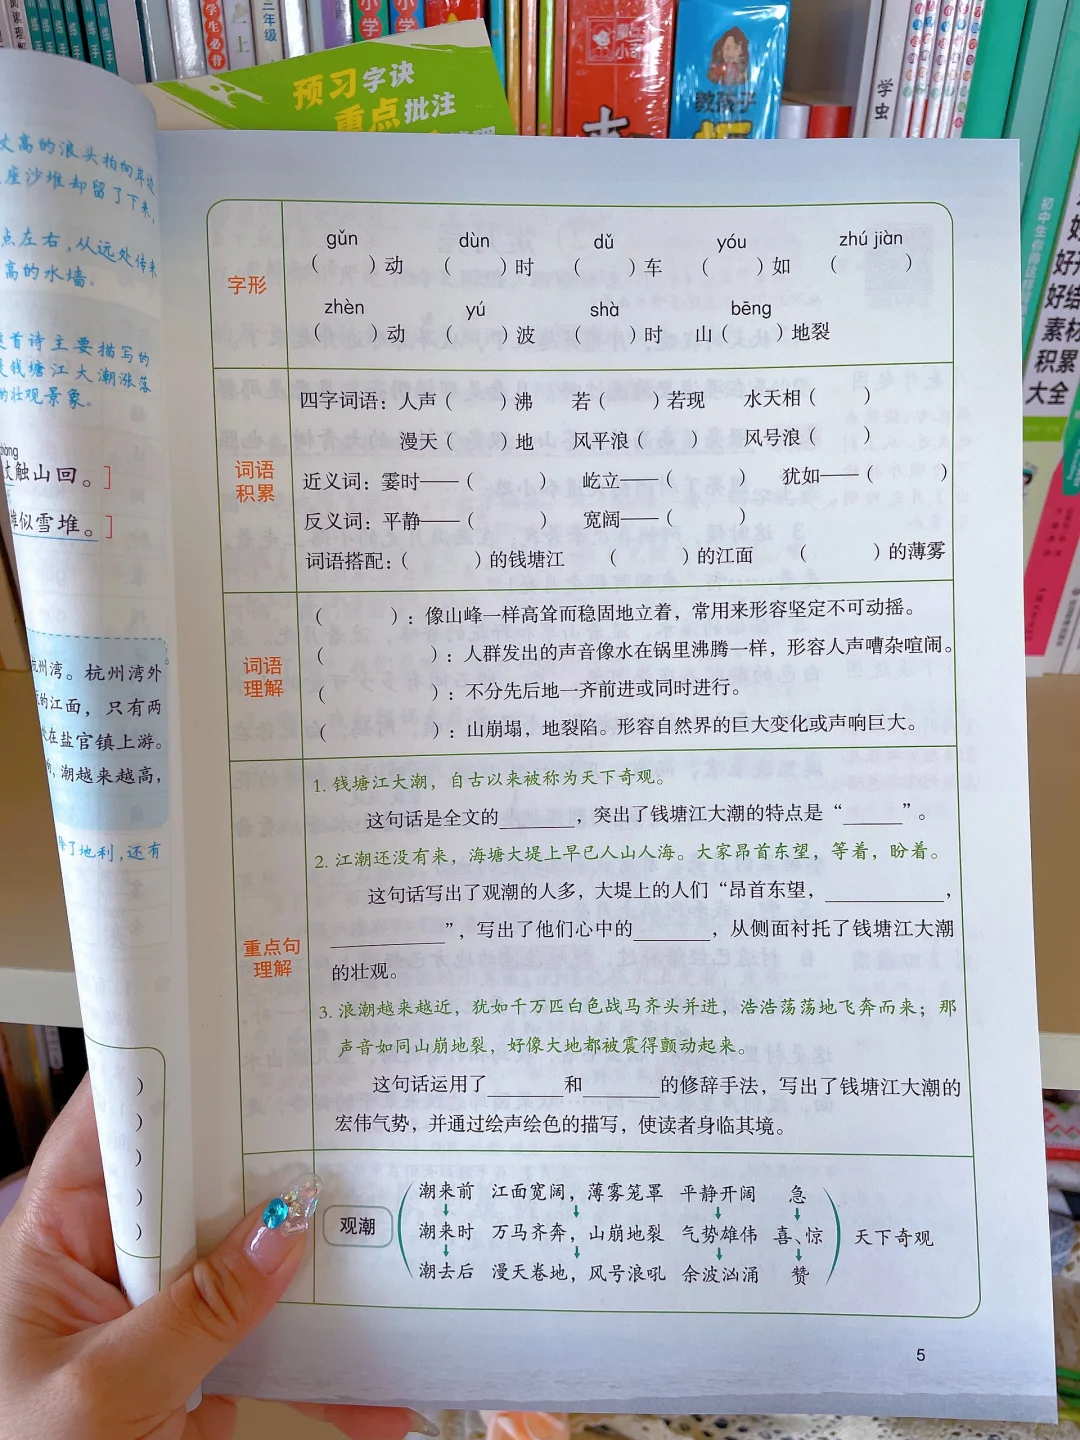 预习字诀
重点批注
学虫
教孩子
初中生你得这样
好开
好结
素材
积累
大全
丈高的浪头拍向岸边
座沙堆却留了下来,
点左右,从远处传来
高的水墙。
首诗主要描写的
钱塘江大潮涨落
的壮观景象。
触山回。]
似雪堆。]
杭州湾。杭州湾外
的江面,只有两
在盐官镇上游。
,潮越来越高,
了地利,还有
字形
gǔn dùn dǔ yóu zhú jiàn
( )动 ( )时 ( )车 ( )如 ( )
zhèn yú shà bēng
( )动 ( )波 ( )时 山( )地裂
词语积累
四字词语:人声( )沸 若( )若现 水天相( )
漫天( )地 风平浪( ) 风号浪( )
近义词:霎时——( ) 屹立——( ) 犹如——( )
反义词:平静——( ) 宽阔——( )
词语搭配:( )的钱塘江 ( )的江面 ( )的薄雾
词语理解
( ):像山峰一样高耸而稳固地立着,常用来形容坚定不可动摇。
( ):人群发出的声音像水在锅里沸腾一样,形容人声嘈杂喧闹。
( ):不分先后地一齐前进或同时进行。
( ):山崩塌,地裂陷。形容自然界的巨大变化或声响巨大。
重点句理解
1. 钱塘江大潮,自古以来被称为天下奇观。
这句话是全文的_______,突出了钱塘江大潮的特点是“______”。
2. 江潮还没有来,海塘大堤上早已人山人海。大家昂首东望,等着,盼着。
这句话写出了观潮的人多,大堤上的人们“昂首东望,____________,
____________”,写出了他们心中的_______,从侧面衬托了钱塘江大潮
的壮观。
3. 浪潮越来越近,犹如千万匹白色战马齐头并进,浩浩荡荡地飞奔而来;那
声音如同山崩地裂,好像大地都被震得颤动起来。
这句话运用了_______和_______的修辞手法,写出了钱塘江大潮的
宏伟气势,并通过绘声绘色的描写,使读者身临其境。
观潮
潮来前 江面宽阔,薄雾笼罩 平静开阔 急
潮来时 万马齐奔,山崩地裂 气势雄伟 喜、惊
潮去后 漫天卷地,风号浪吼 余波汹涌 赞
天下奇观
5